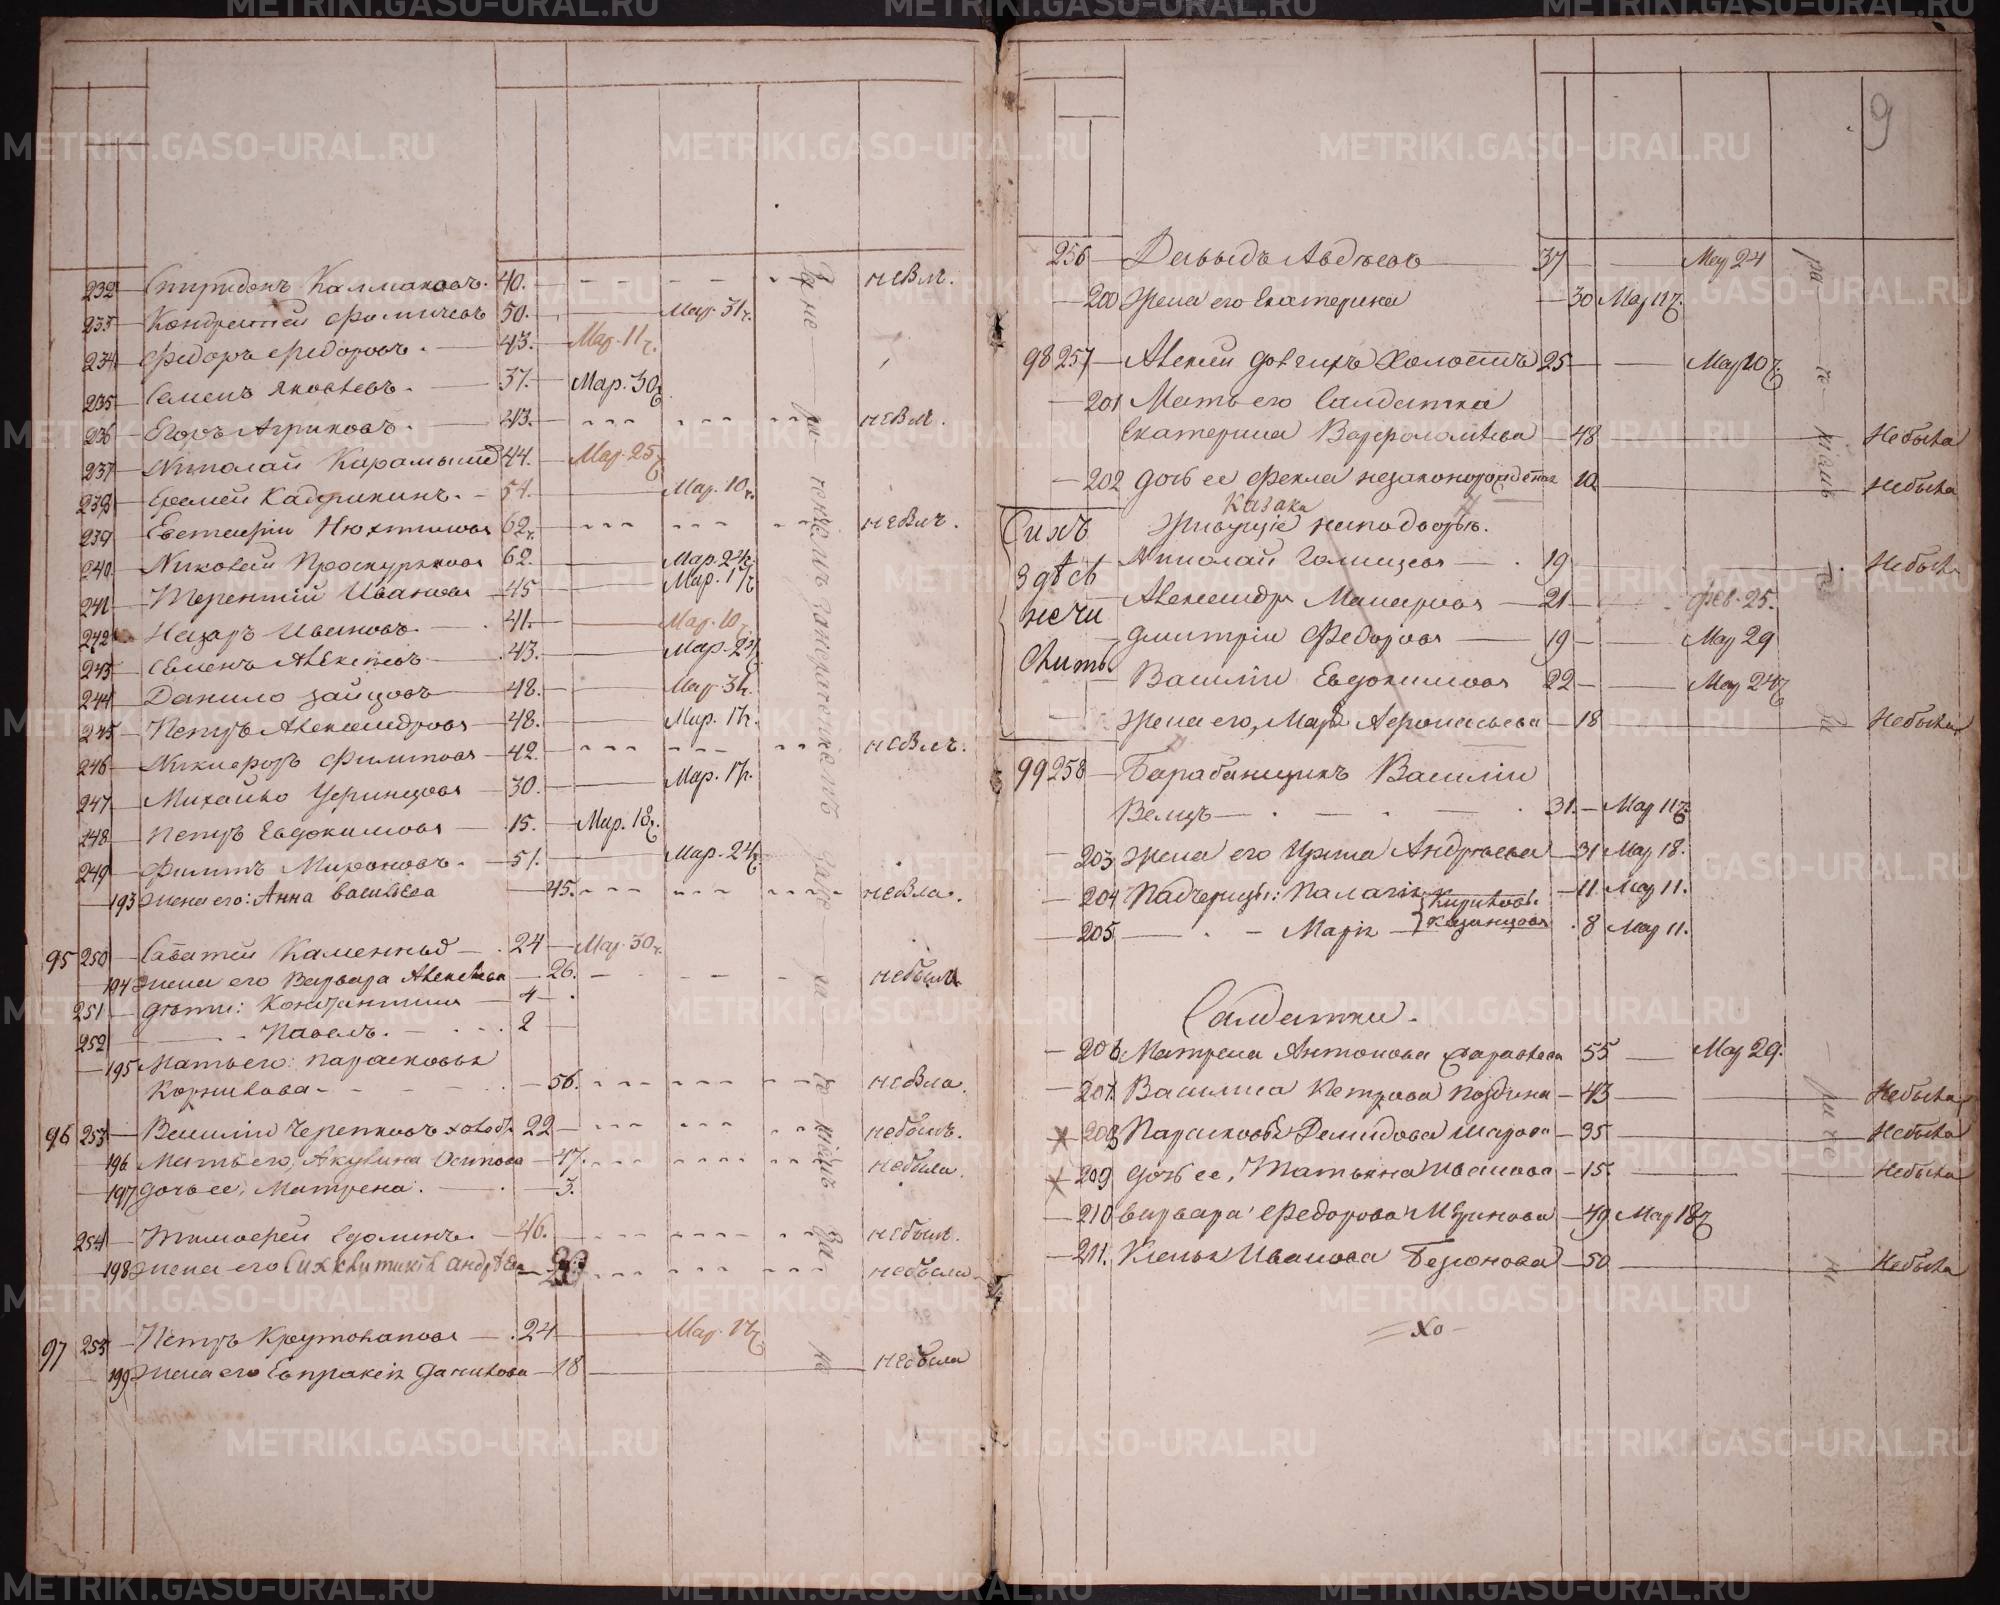 232 Спиридонъ Калмаковъ. 40. невлъ.
233 Кондратей Фомичевъ 50. Мар. 31ч.
234 Федоръ Федоровъ. 43. Мар. 11ч.
235 Семенъ Яковлевъ. 37. Мар. 30ч
236 Егоръ Агриковъ. 43. невлъ.
237 Николай Карамышъ 44. Мар. 25ч
238 Еремей 54. Мар. 10ч.
239 Евстафiи 62. невлъ.
240 Николай Проскуряковъ 62. Мар. 24ч.
241 Терентiй Ивановъ 45 Мар. 17ч
242 Назаръ Ивановъ. 41. Мар. 10ч
243 Семенъ Алексѣевъ 43. Мар. 24ч
244 Данило Зайцовъ 48. Мар. 31ч.
245 Петръ Александровъ 48. Мар. 17ч.
246 Никифоръ Филиповъ 42. невлъ.
247 Михайло 30. Мар. 17ч.
148 Петръ Евдокимовъ 15. Мар. 18ч.
249 Филипъ Мироновъ. 51. Мар. 24ч.
193 жена его: Анна Васильева 45. невла.
95 250 Саватей Каменный 24 Мар. 30ч.
194 жена его Варвара Алексѣева 26. небыла
251 дѣти: Константинъ 4
252 Павелъ. 2
195 Мать его: Парасковья
Корнилова 56. невла.
96 253 Василiи Черепковъ холостъ 22 небылъ.
196 Мать его, Акулина Осипова 47. небыла.
197 дочь ее, Матрена. 3.
254 Тимофей 46. небылъ.
198 жена его Синклитикiя Андрѣева небыла
97 255 Петръ Крутолаповъ 24 Мар. 17ч.
199 жена его Евпраксiя Данилова 18 небыла
9
256 Давыдъ Авдѣевъ 37 Мар 24
200 жена его Екатерина 30 Мар 11ч.
98 257 Алексѣй Довгихъ Холостъ 25 Мар 10ч.
201 Мать его Салдатка
Екатерина Варфоломѣева 48 Небыла
202 дочь ее Фекла незаконорожденная 10 Небыла
Казака
Сихъ живущiе на подворьѣ.
Николай Голицовъ 19 Небылъ
здѣсь
Александръ Макаровъ 21 Фев. 25.
нечи
Дмитрiи Федоровъ 19 Мар 29
слить
Василiи Евдокимовъ 22 Мар 24ч
жена его, Марья Афонасьева 18 Небыла
99 258 Барабанщикъ Василiи
Велцъ 31. Мар 11ч
203 жена его Ирина Андрѣева 31 Мар 18.
204 Падчерицы: Палагiя Кириловы 11 Мар 11.
205 Марiя Казанцовы 8 Мар 11.
Салдатки.
206 Матрена Антонова 55 Мар 29.
207. Василиса Петрова 43 Небыла
208 Парасковья Демидова Шарова 35 Небыла
209 дочь ее, Татьяна Иванова 15. Небыла
210 Варвара Федорова 49 Мар 18ч
211. Ксенья Иванова 50 Небыла